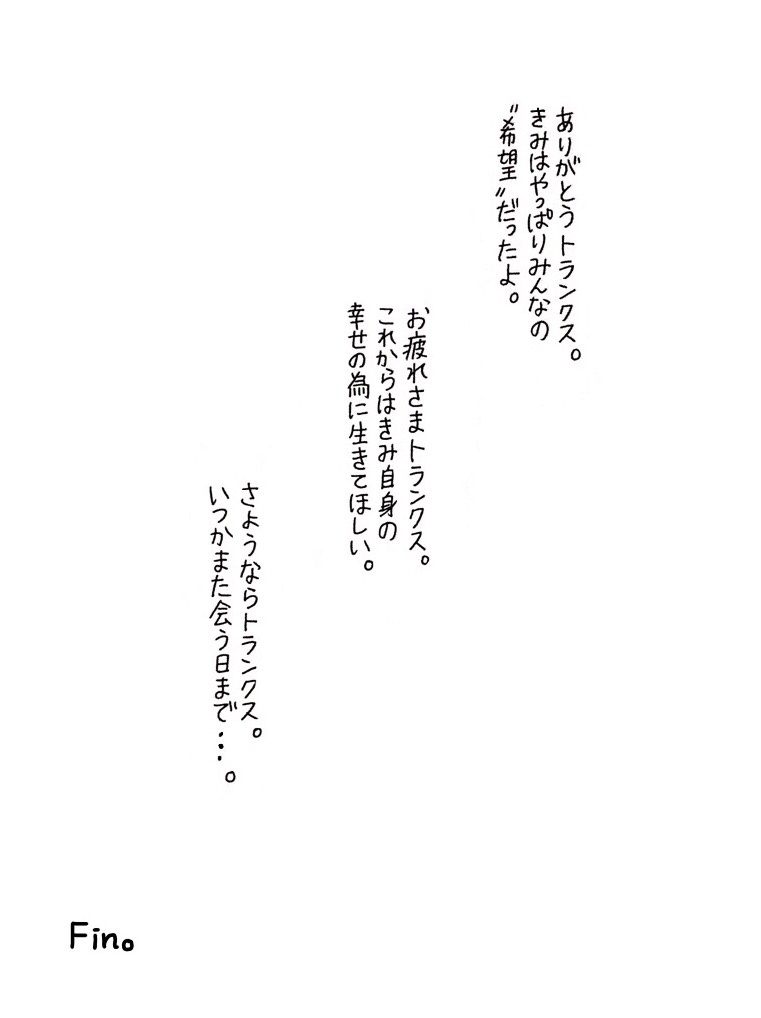 ありがとうトランクス。
きみはやっぱりみんなの
〝希望〟だったよ。
お疲れさまトランクス。
これからはきみ自身の
幸せの為に生きてほしい。
さようならトランクス。
いつかまた会う日まで・・・。
Fin。